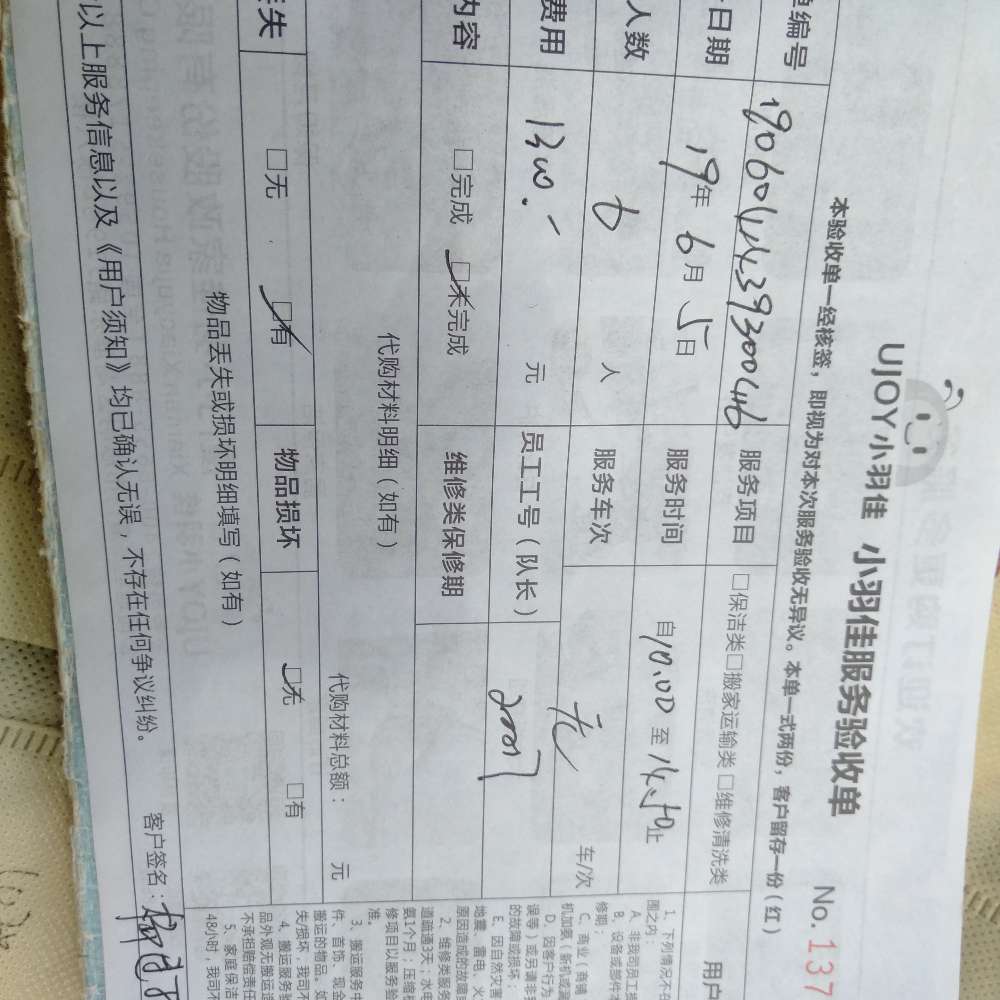 UJOY小羽佳 小羽佳服务验收单 No. 137
本验收单一经核签，即视为对本次服务验收无异议。本单一式两份，客户留存一份（红）
单编号 服务项目 □保洁类□搬家运输类 □维修清洗类 用户
日期 19年 6月 5日 服务时间 自10.00 至 14.50止
人数 6 人 服务车次 无 车/次
费用 1300.- 元 员工工号（队长） 20007
内容 □完成 □未完成 维修类保修期
代购材料明细（如有）
代购材料总额： 元
丢失 □无 □有 物品损坏 □无 □有
物品丢失或损坏明细填写（如有）
以上服务信息以及《用户须知》均已确认无误，不存在任何争议纠纷。 客户签名:
1、下列情况不在
围之内：
A、非我司员工操
B、设备或部件本
修期；
C、商业（商铺
机加氨（新机或漏
D、因客户行为
误等）或另请非我
的故障或损坏；
E、因自然灾害
地震、雷电、火
原因造成的故障或
2、维修类服务
道疏通3天；水电
氨1个月；压缩机
修项目以服务验
准。
3、搬运服务中
件、首饰、现金
搬运的物品。如
失/损坏，我司不
4、搬运服务验
品外观无搬运造
不承担赔偿责任
5、家庭保洁
48小时，我司不